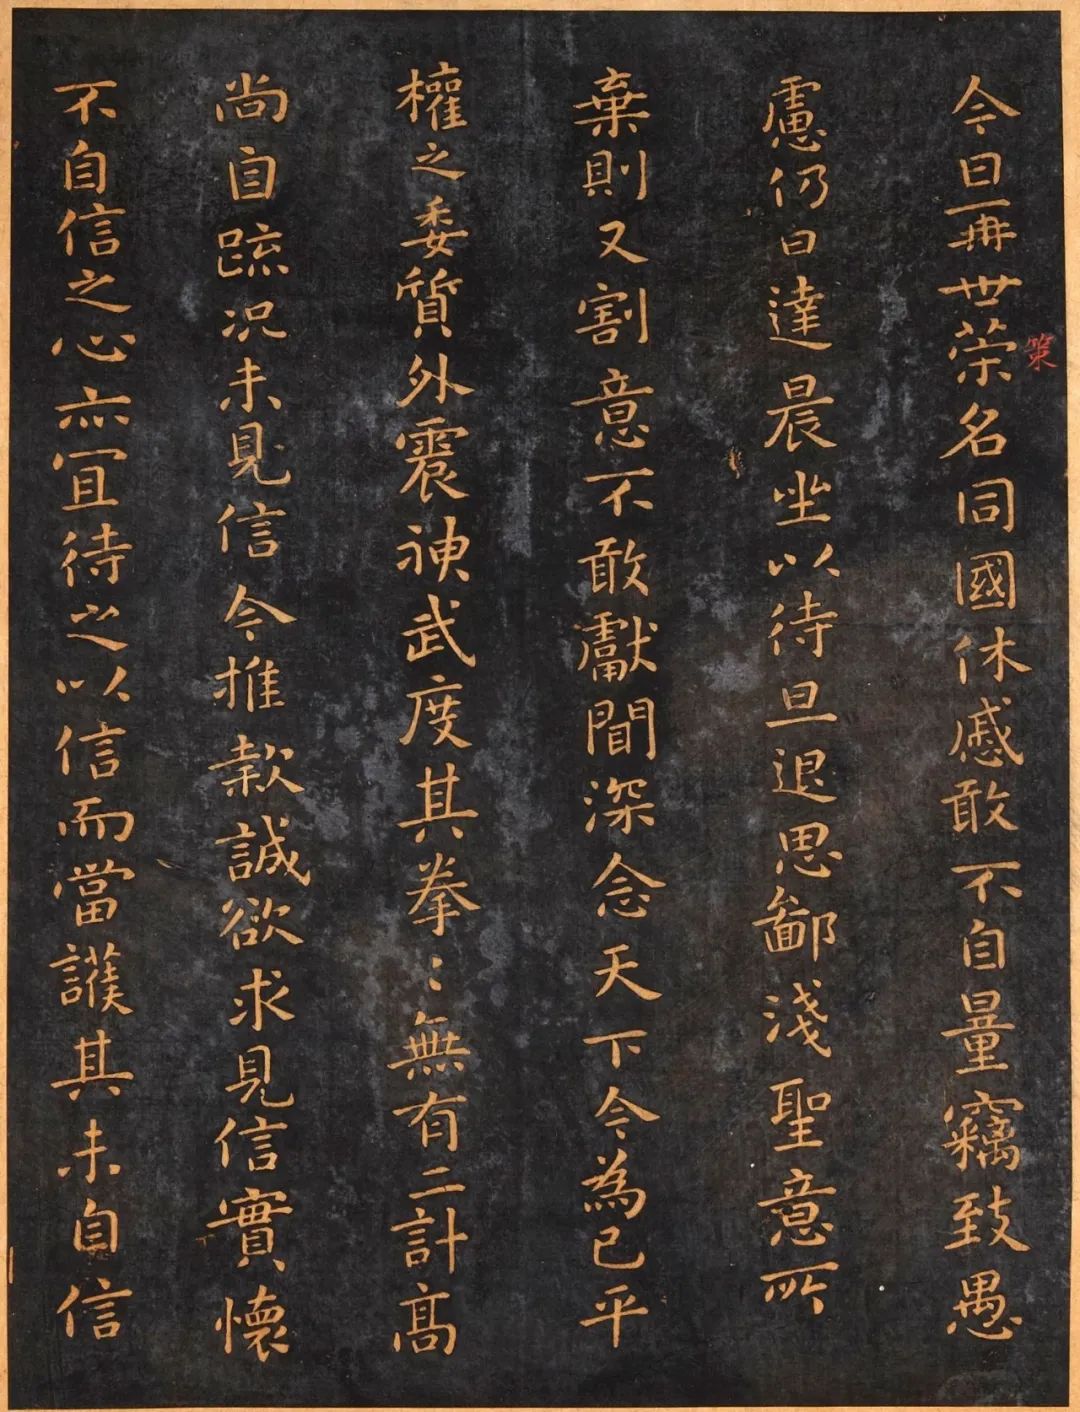 今日再世榮名同國休慼敢不自量竊致愚
策
慮仍日達晨坐以待旦退思鄙淺聖意所
棄則又割意不敢獻聞深念天下今為已平
權之委質外震神武度其拳〻無有二計高
尚自疏況未見信今推款誠欲求見信實懷
不自信之心亦宜待之以信而當護其未自信